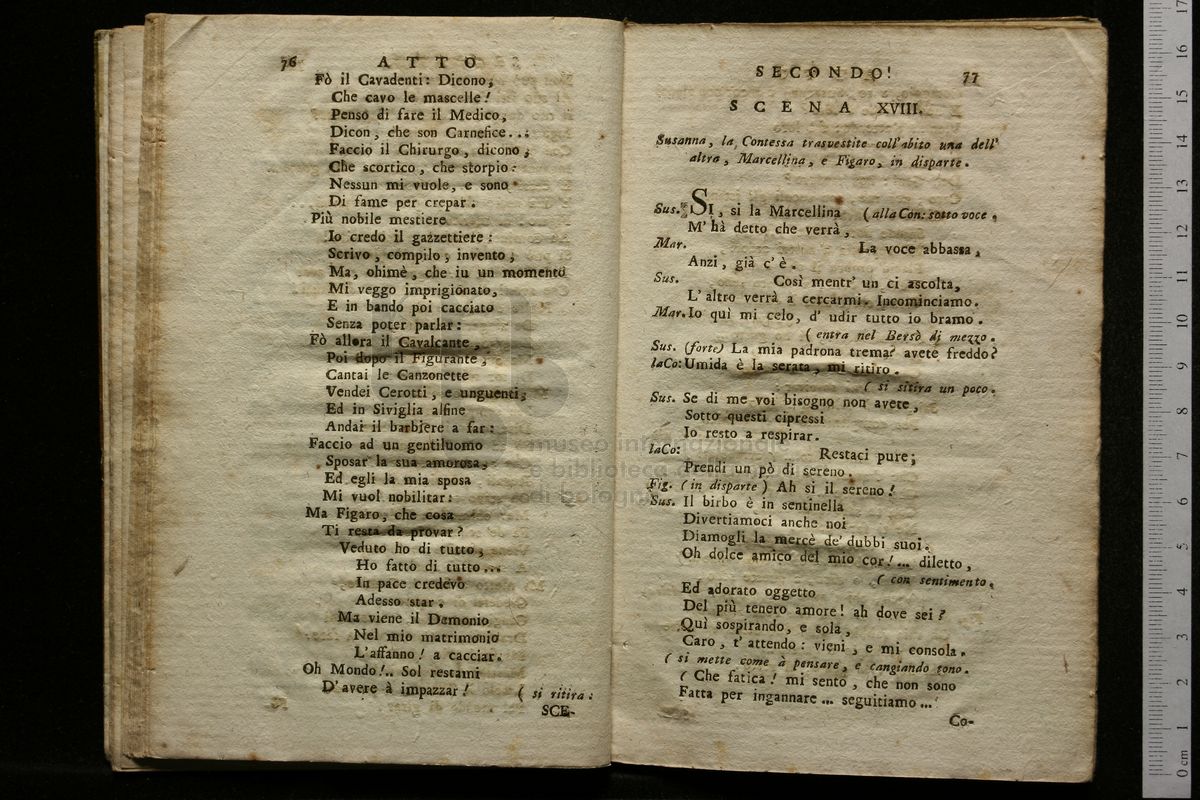 76 ATTO
Fò il Cavadenti: Dicono,
Che cavo le mascelle!
Penso di fare il Medico,
Dicon, che son Carnefice...
Faccio il Chirurgo, dicono,
Che scortico, che storpio:
Nessun mi vuole, e sono
Di fame per crepar.
Più nobile mestiere
Io credo il gazzettiere:
Scrivo, compilo, invento,
Ma, ohimè, che iu un momento
Mi veggo imprigionato,
E in bando poi cacciato
Senza poter parlar:
Fò allora il Cavalcante,
Poi dopo il Figurante,
Cantai le Canzonette
Vendei Cerotti, e unguenti,
Ed in Siviglia alfine
Andai il barbiere a far:
Faccio ad un gentiluomo
Sposar la sua amorosa,
Ed egli la mia sposa
Mi vuol nobilitar:
Ma Figaro, che cosa
Ti resta da provar?
Veduto ho di tutto,
Ho fatto di tutto...
In pace credevo
Adesso star.
Ma viene il Demonio
Nel mio matrimonio
L'affanno! a cacciar.
Oh Mondo!.. Sol restami
D'avere à impazzar! ( si ritira:
SCE-
SECONDO! 77
SCENA XVIII.
Susanna, la Contessa trasvestite coll'abito una dell'
altra, Marcellina, e Figaro, in disparte.
Sus. SI, si la Marcellina ( alla Con: sotto voce,
M' hà detto che verrà,
Mar. La voce abbassa,
Anzi, già c'è.
Sus. Così mentr' un ci ascolta,
L'altro verrà a cercarmi. Incominciamo.
Mar. Io quì mi celo, d' udir tutto io bramo.
( entra nel Bersò di mezzo.
Sus. (forte) La mia padrona trema? avete freddo?
laCo: Umida è la serata, mi ritiro.
( si sitira un poco.
Sus. Se di me voi bisogno non avete,
Sotto questi cipressi
Io resto a respirar.
laCo: Restaci pure;
Prendi un pò di sereno.
Fig. ( in disparte ) Ah si il sereno!
Sus. Il birbo è in sentinella
Divertiamoci anche noi
Diamogli la mercè de' dubbi suoi.
Oh dolce amico del mio cor!... diletto,
( con sentimento,
Ed adorato oggetto
Del più tenero amore! ah dove sei?
Quì sospirando, e sola,
Caro, t' attendo: vieni, e mi consola.
( si mette come à pensare, e cangiando tono.
( Che fatica! mi sento, che non sono
Fatta per ingannare ... seguitiamo ...
Co-
museo internazionale
e biblioteca
di bologna
0 cm 1 2 3 4 5 6 7 8 9 10 11 12 13 14 15 16 17